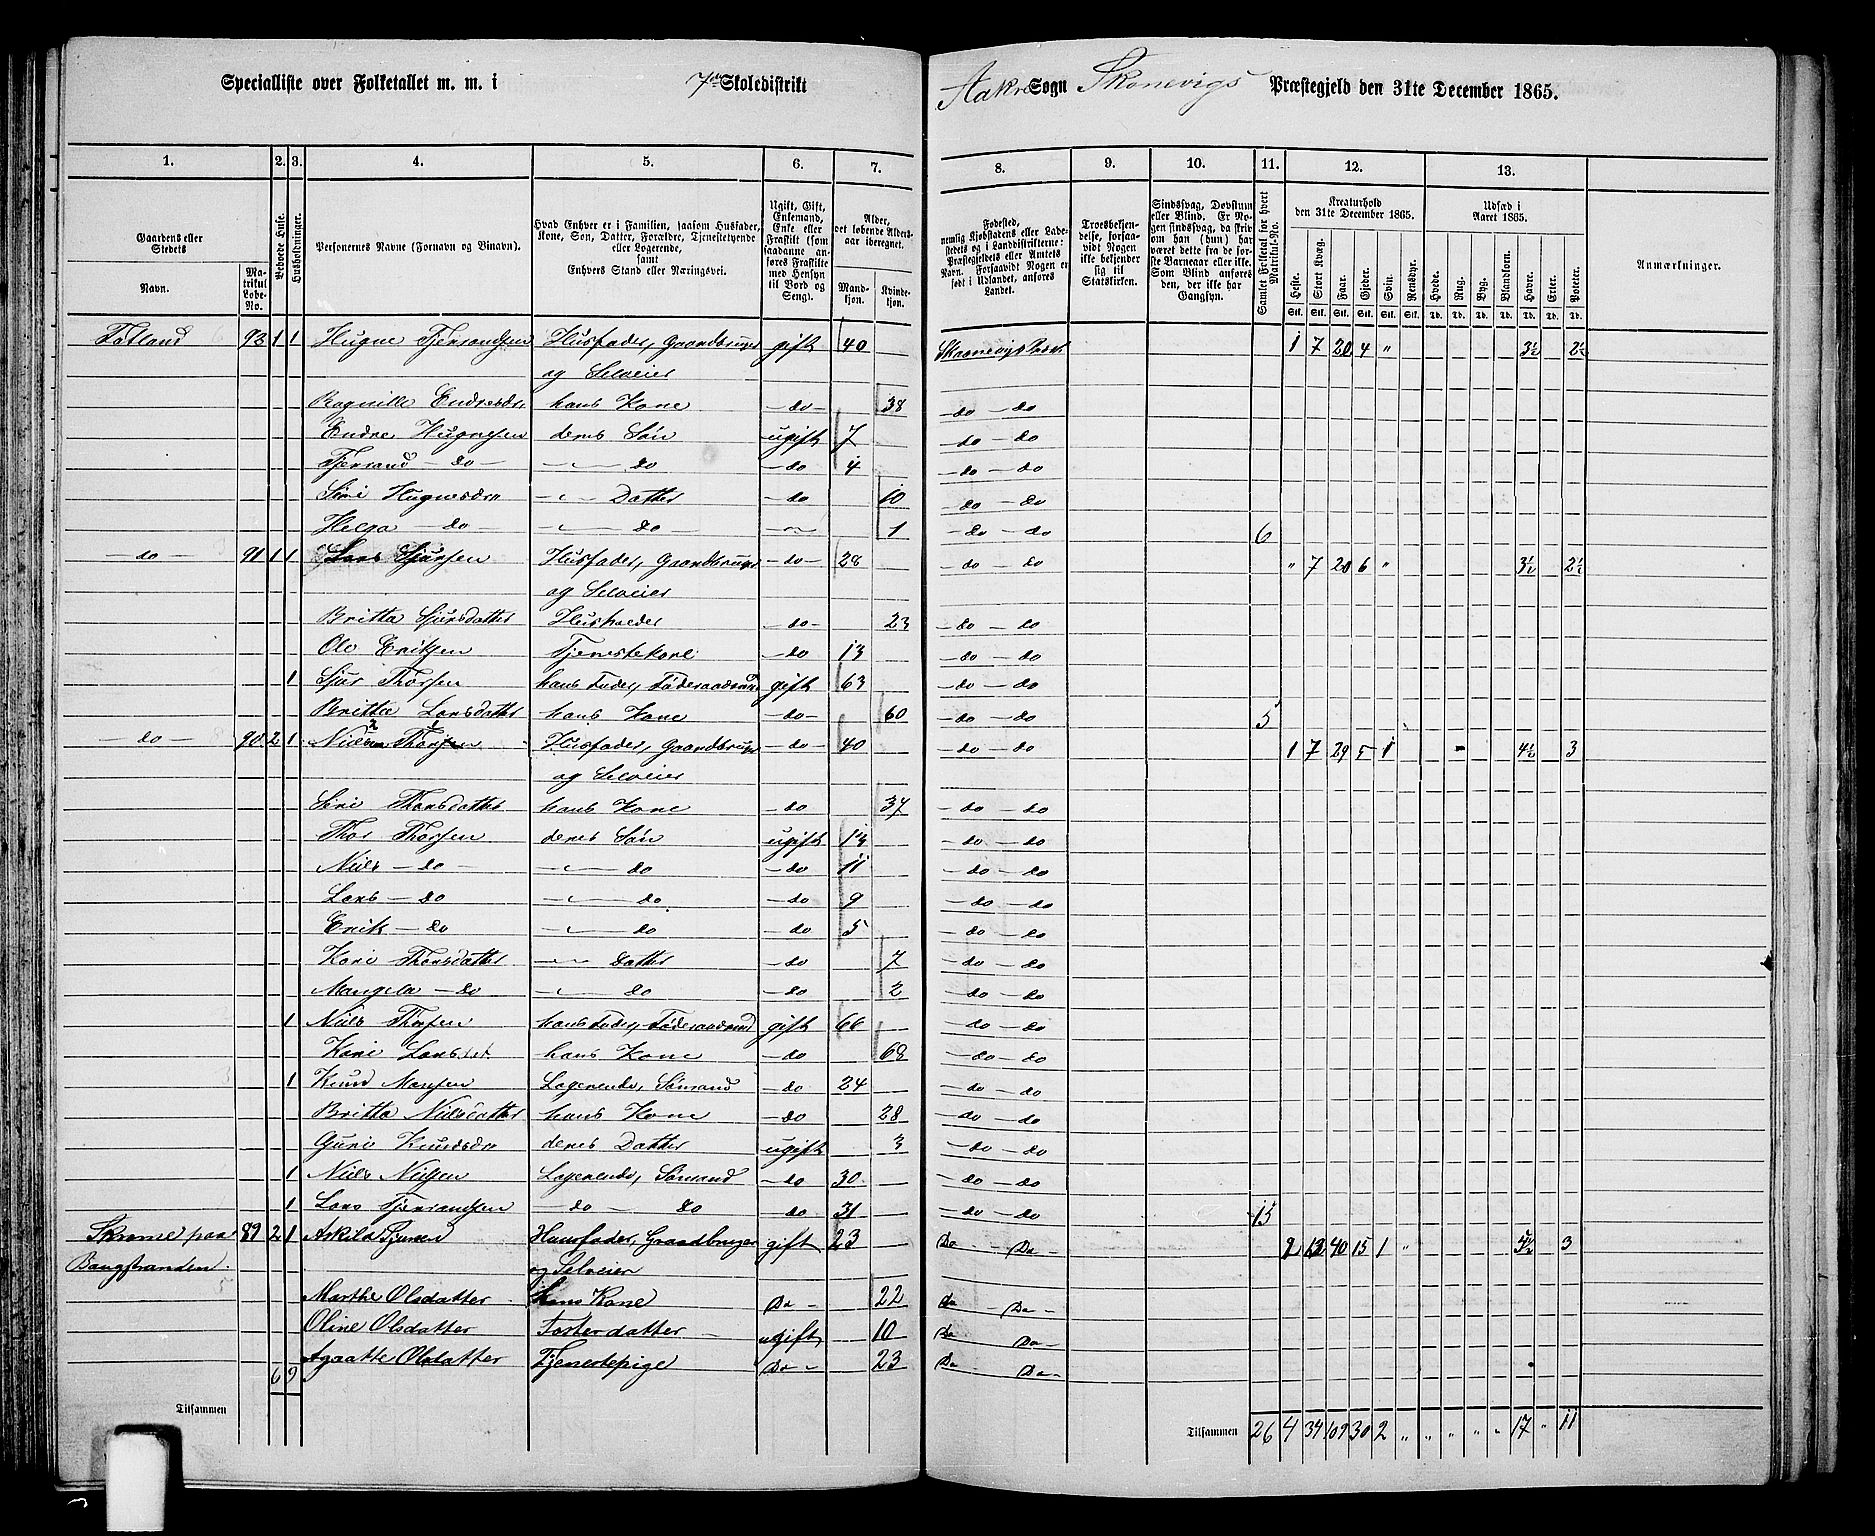 Specialliste over Folketallet m. m. i 7de Skoledistrikt Aakre Sogn Skonevigs Præstegjeld den 31te December 1865.
1. 2. 3. 4. 5. 6. 7. 8. 9. 10. 11. 12. 13.
Gaardens eller Stedets
Navn.
Matrikul Løbe-No.
Beboede Huse.
Husholdninger.
Personernes Navne (Fornavn og Tilnavn).
Hvad Enhver er i Familien, saasom Husfader, Kone, Søn, Datter, Forældre, Tjenestetyende eller Logerende, samt Enhvers Stand eller Næringsvei.
Ugift, Gift, Enkemand, Enke eller Fraskilt (som saadanne anføres Fraskilte med Hensyn til Bord og Seng).
Alder, det løbende Aldersaar iberegnet.
Mandkjøn. Kvindekjøn.
Fødested, nemlig Kjøbstadens eller Ladestedets og i Landdistrikterne: Præstegjeldets eller Amtets Navn. Forsaavidt Nogen er født i Udlandet, anføres Landet.
Troesbekjendelse, forsaavidt Nogen ikke bekjender sig til Statskirken.
Sindssvag, Døvstum eller Blind. Er Nogen sindssvag, da skriv om han (hun) har været dette fra de første Barneaar eller ikke. Som Blind anføres den, der ikke har Gangsyn.
Samlet Folketal for hvert Matrikul-No.
Kreaturhold den 31te December 1865.
Heste. Stort Kvæg. Faar. Gjeder. Svin. Rensdyr.
Stk. Stk. Stk. Stk. Stk. Stk.
Udsæd i Aaret 1865.
Hvede. Rug. Byg. Blandkorn. Havre. Erter. Poteter.
Td. Td. Td. Td. Td. Td. Td.
Anmærkninger.
92 1 1 Hugne Tjerandsen Husfader, Gaardbruger gift 40 1 7 20 4 " 3½ 2½
og Selveier
hans Kone -do- 38 -do -do
Endre Hugnesen deres Søn ugift 7 -do -do
Tjerand -do- do -do 4 -do -do
Siri Datter -do 10 -do -do
-do- do 1 -do -do 6
-do- 91 1 1 Lars Sjursen Husfader, Gaardbruger -do- 28 -do do " 7 20 6 " 3½ 2½
og Selveier
Britta Sjursdatter -do- 23 -do -do
Ole Eriksen Tjenestekarl -do 13 -do -do
1 Sjur Thorsen hans Fader, gift 63 -do -do
Britta Larsdatter hans Kone -do- 60 -do -do 5
-do- 90 2 1 Husfader, Gaardbruger -do- 40 -do -do 1 7 29 5 1 4½ 3
og Selveier
Siri Thorsdatter hans Kone -do 37 -do -do
Thor Thorsen deres Søn ugift 13 -do -do
Niels -do- do -do 11 -do -do
Lars -do do -do 9 -do -do
Erik -do do do 5 -do -do
Kari Thorsdatter Datter -do 7 -do -do
Mangela -do do -do 2 -do -do
1 Niels Thorsen hans Fader, gift 66 -do -do
Kari hans Kone -do 68 -do -do
1 Knud Monsen Logerende, Sømand -do 24 -do -do
Britta Nielsdatter hans Kone -do 28 -do -do
Guri deres Datter ugift 3 -do -do
1 Niels Nielsen Logerende, Sømand -do 30 -do -do
1 Lars Tjerandsen -do- do do 31 -do -do 15
paa 89 2 1 Askild Husfader, Gaardbruger gift 23 Do - Do - 2 13 40 15 1 " 3
og Selveier
Marthe Olsdatter hans Kone Do - 22 Do - Do -
Oline Olsdatter Fosterdatter ugift 10 Do Do -
Agaatte Olsdatter Tjenestepige Do - 23 Do Do -
6 9
Tilsammen
Tilsammen 26 4 34 109 30 2 " " " " " 17 " 11